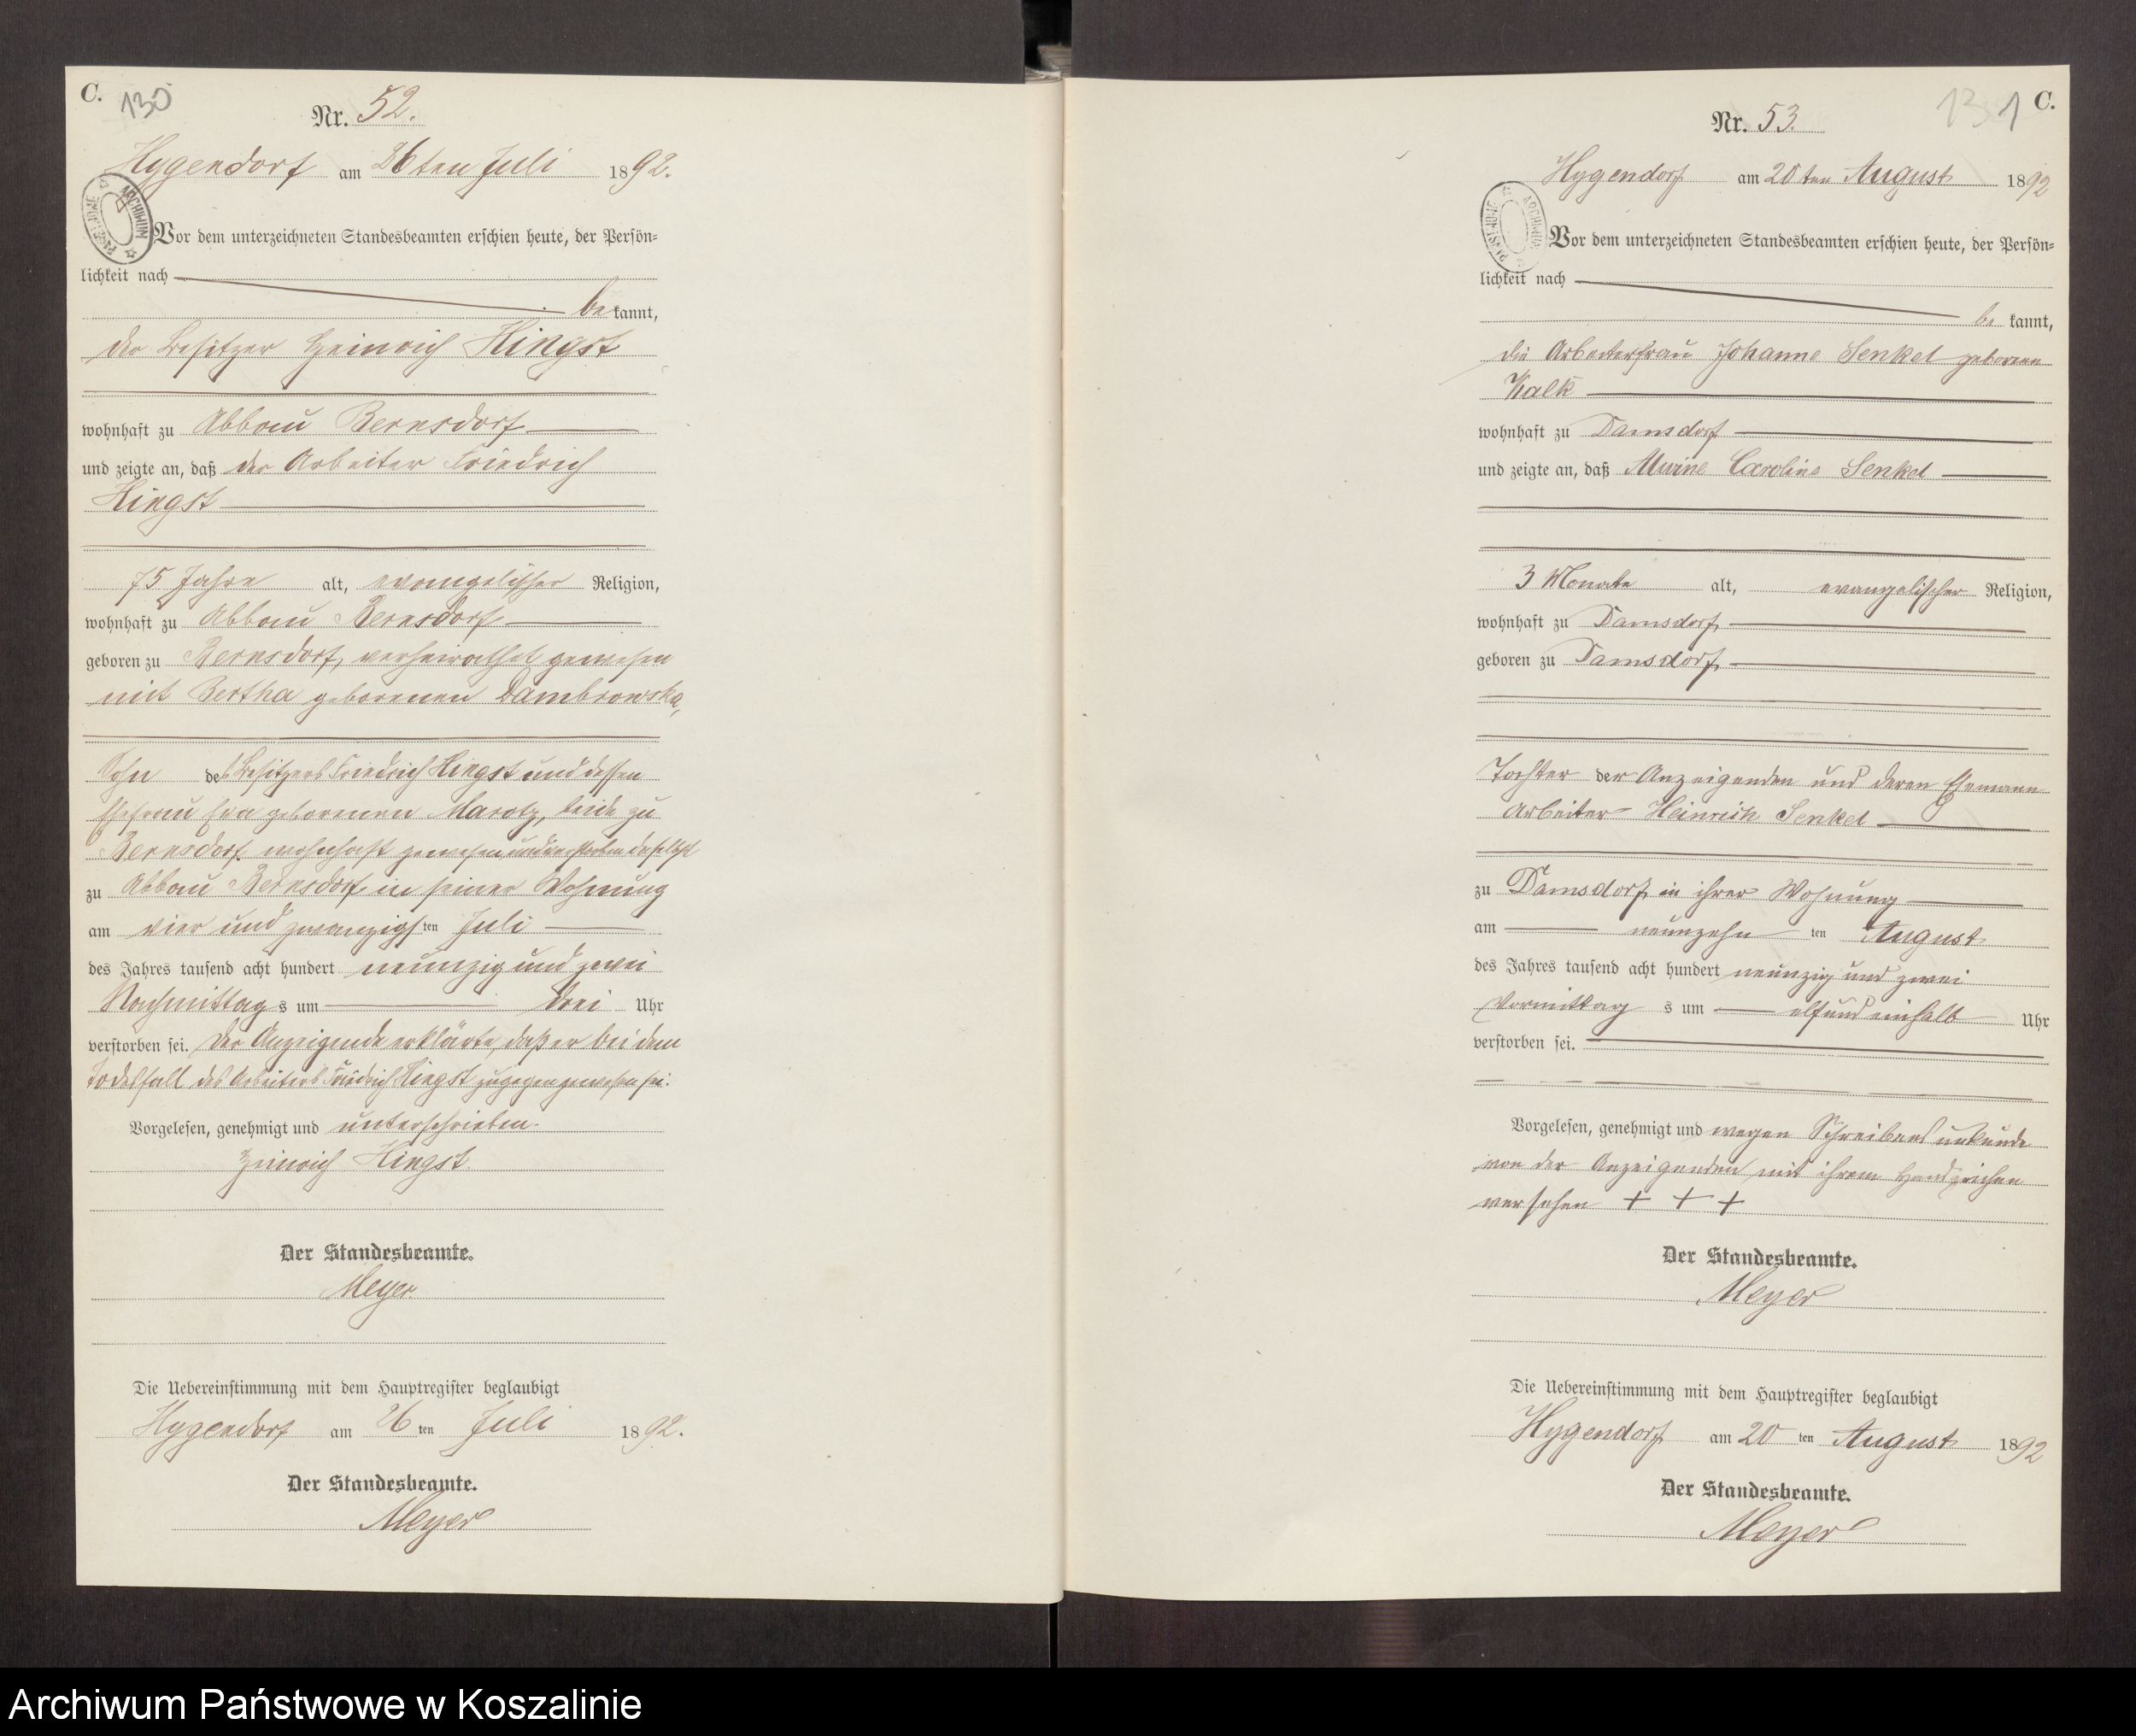 C. 130
Nr. 52.
Hygendorf am 26ten Juli 1892.
ARCHIWUM PAŃSTWOWE
Vor dem unterzeichneten Standesbeamten erschien heute, der Persön=
lichkeit nach
bekannt,
der Besitzer Heinrich Hingst
wohnhaft zu Abbau Bernsdorf
und zeigte an, daß der Arbeiter Friedrich
Hingst
75 Jahre alt, evangelischer Religion,
wohnhaft zu Abbau Bernsdorf
geboren zu Bernsdorf, verheirathet gewesen
mit Bertha geborenen Dambrowska,
Sohn des Besitzers Friedrich Hingst und dessen
Ehefrau Eva geborenen Marotz, beide zu
Bernsdorf wohnhaft gewesen und verstorben daselbst
zu Abbau Bernsdorf in seiner Wohnung
am vier und zwanzigsten Juli
des Jahres tausend acht hundert neunzig und zwei
Nachmittags um drei Uhr
verstorben sei. Der Anzeigende erklärte, daß er bei dem
Todesfall des Arbeiters Friedrich Hingst zugegen gewesen sei.
Vorgelesen, genehmigt und unterschrieben.
Heinrich Hingst
Der Standesbeamte.
Meyer
Die Uebereinstimmung mit dem Hauptregister beglaubigt
Hygendorf am 26 ten Juli 1892.
Der Standesbeamte.
Meyer
131 C.
Nr. 53.
Hygendorf am 20ten August 1892
ARCHIWUM PAŃSTWOWE
Vor dem unterzeichneten Standesbeamten erschien heute, der Persön=
lichkeit nach
be kannt,
die Arbeiterfrau Johanne Senkel geborene
Kalk
wohnhaft zu Damsdorf
und zeigte an, daß Caroline Senkel
3 Monate alt, evangelischer Religion,
wohnhaft zu Damsdorf,
geboren zu Damsdorf,
Tochter der Anzeigenden und deren Ehemann
Arbeiter Heinrich Senkel
zu Damsdorf in ihrer Wohnung
am neunzehn ten August
des Jahres tausend acht hundert neunzig und zwei
Vormittag s um elf und einhalb Uhr
verstorben sei.
Vorgelesen, genehmigt und wegen Schreibensunkunde
von der Anzeigenden mit ihrem Handzeichen
versehen + + +
Der Standesbeamte.
Meyer
Die Uebereinstimmung mit dem Hauptregister beglaubigt
Hygendorf am 20 ten August 1892
Der Standesbeamte.
Meyer
Archiwum Państwowe w Koszalinie